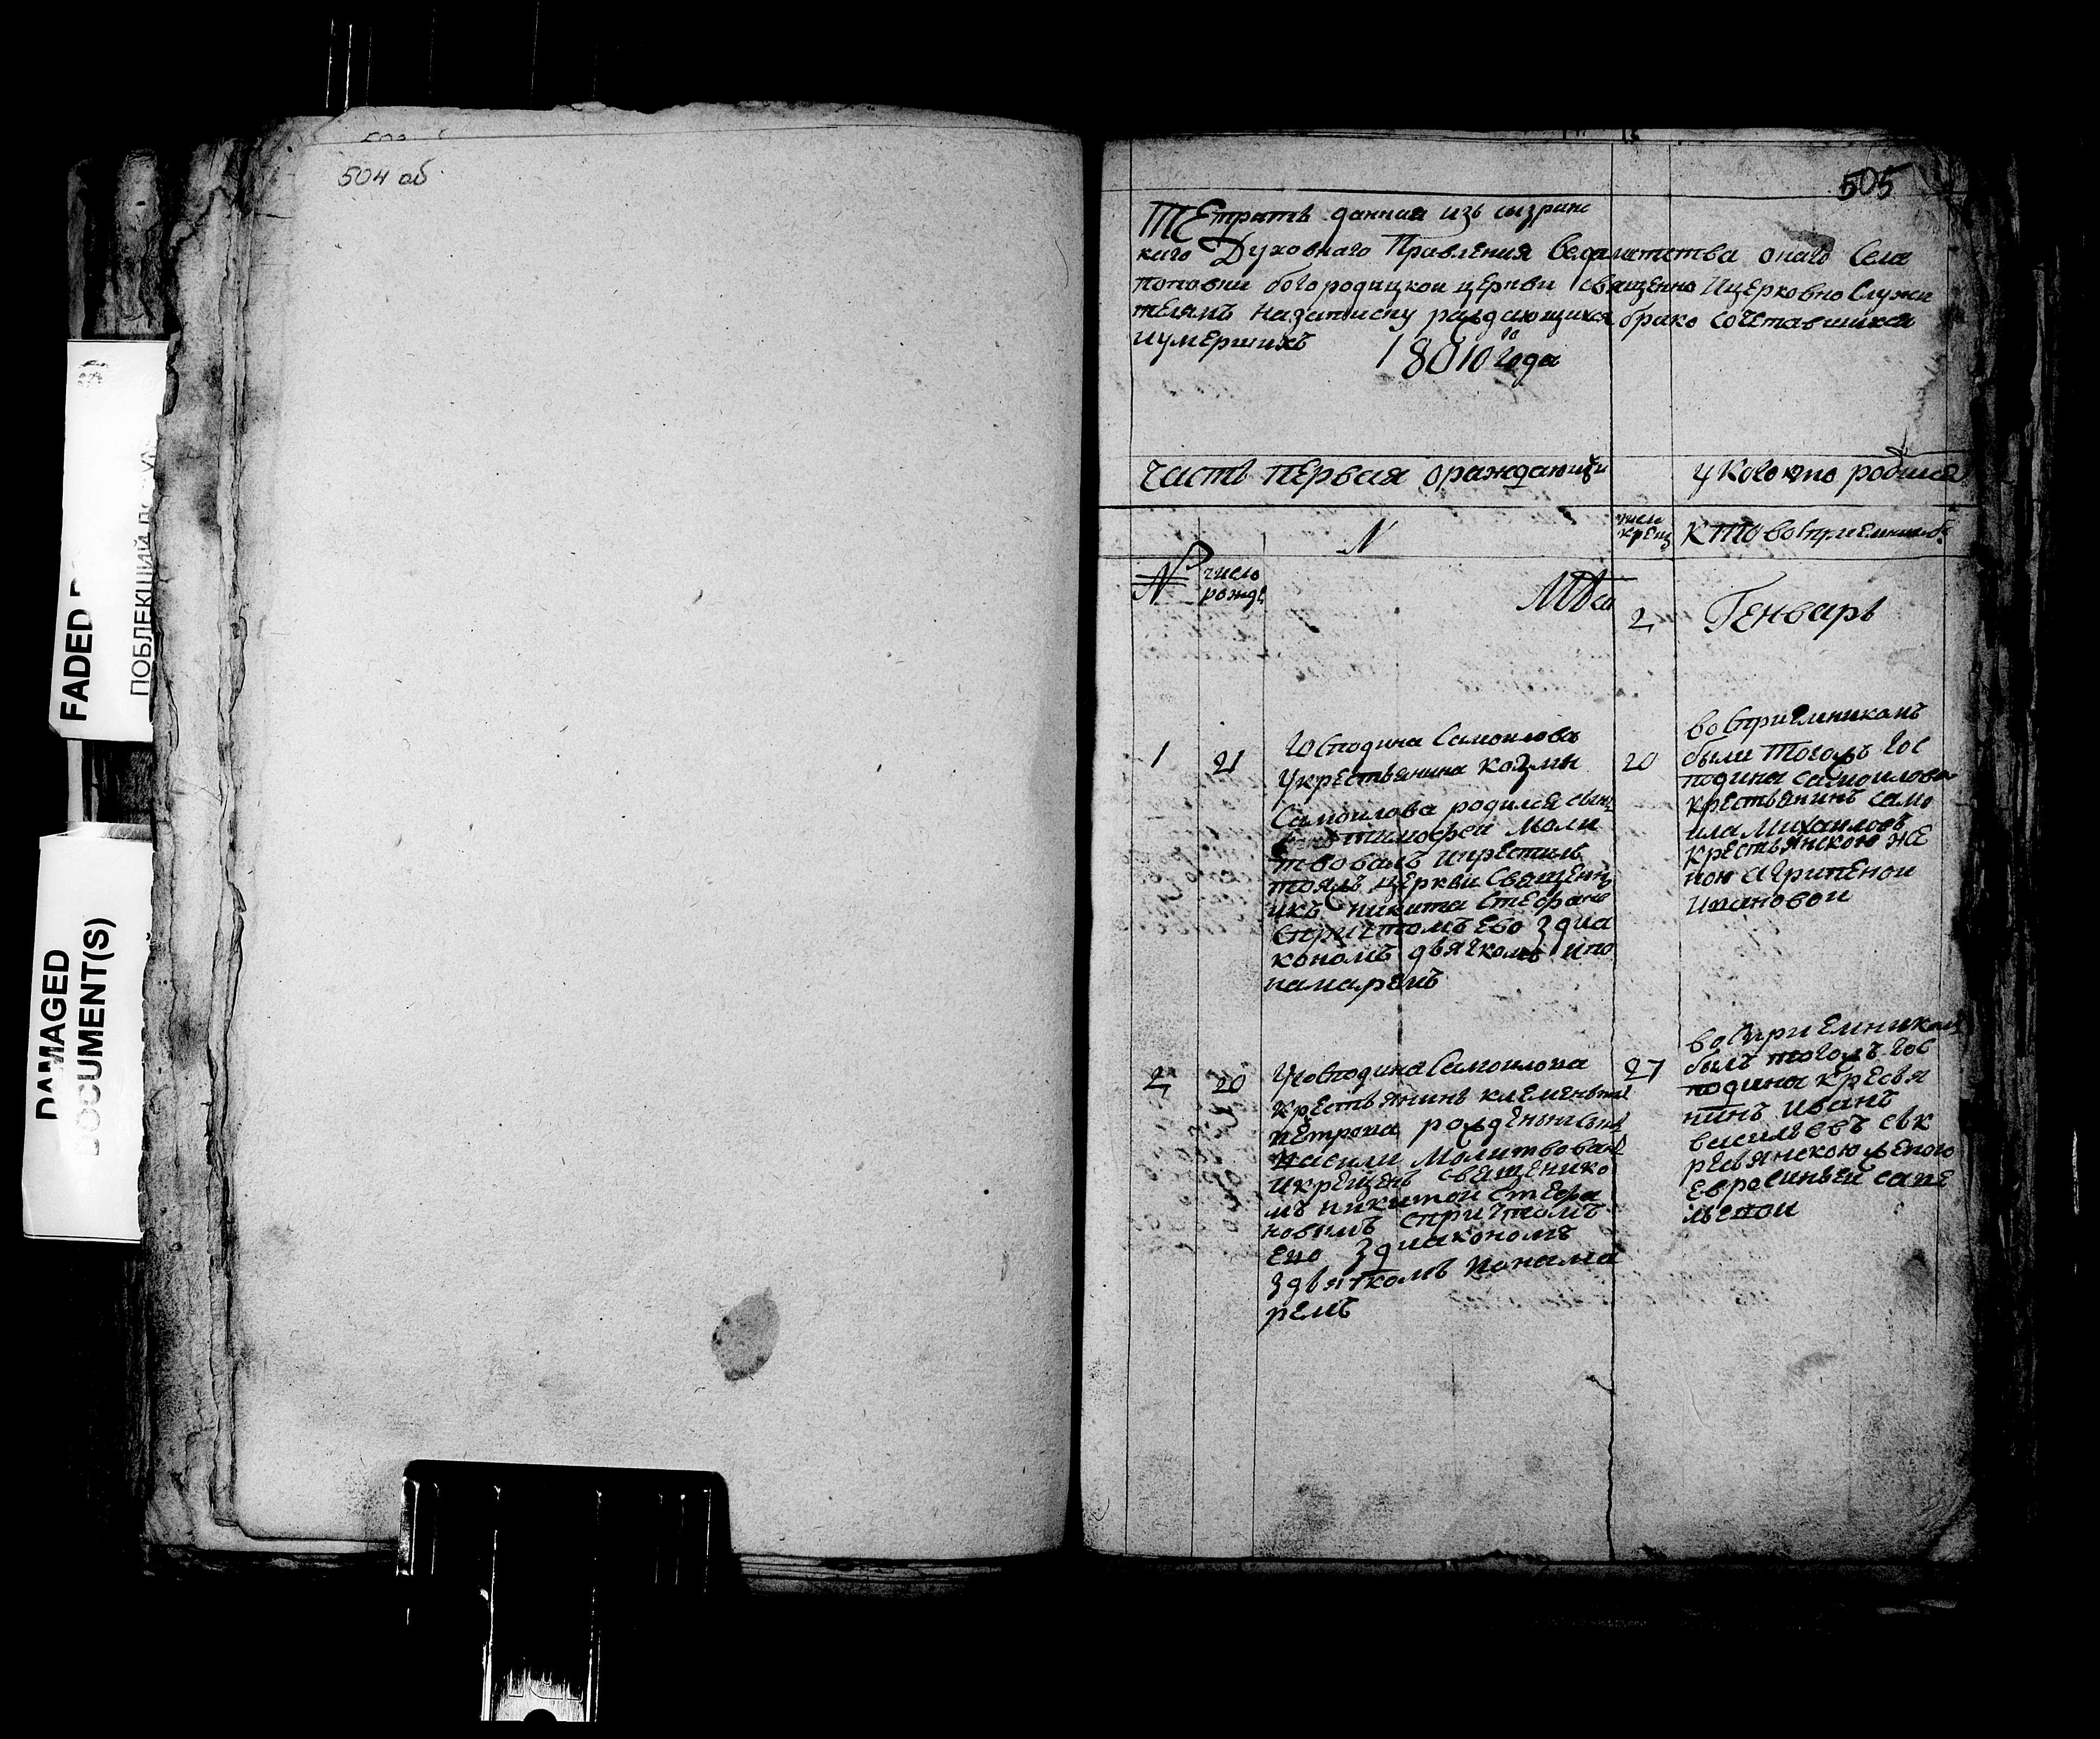 504 об
505
ТЕтрать данная изь сызранс
каго Духовнаго Правления Ведомтства онаго Села
поповки богородицкои церкви священно И церковно Служи
телямъ На записку раждающихся брако сочетавшихся
и умершихъ 18010го Года
часть пЕрвая ораждающи
у Кого кто родился
N
число крещ
кто восприемникъ
№
число рожде
Мца
2
Генварь
1
21
Господина Самоилова
У крестьянина козмы
Самоилова родился сынъ
тимофеи Моли
твовалъ и крестилъ
тояжъ церкви Священн
икъ никита Стефановъ
спричтомъ Ево З диа
кономъ дьячкомъ и по
намаремъ
20
восприемникомъ
были тогожъ гос
подина самоилова
крестьянинъ само
ила Михаиловъ
крестьянскою жЕ
ною Агрипеной
Ивановой
2
20
У господина Самоилова
крестьянинъ клеменьтия
пЕтрова рожденъ сынъ
Василии Молитвованъ
и крещенъ священико
мъ никитой стефа
новымъ спричтомъ
Ево З диакономъ
З дьячкомъ понама
ремъ
27
восприемникомъ
былъ тогожъ гос
подина кресья
нинъ иванъ
васильевъ СЪ к
ресьянскою женою
Евросиньей савЕ
льевой
FADED
ПОБЛЕКШИЙ
DAMAGED
DOCUMENT(S)